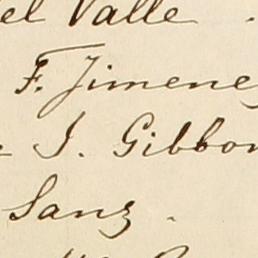 el Valle .
F. Jimene
J. Gibbon
Sanz .